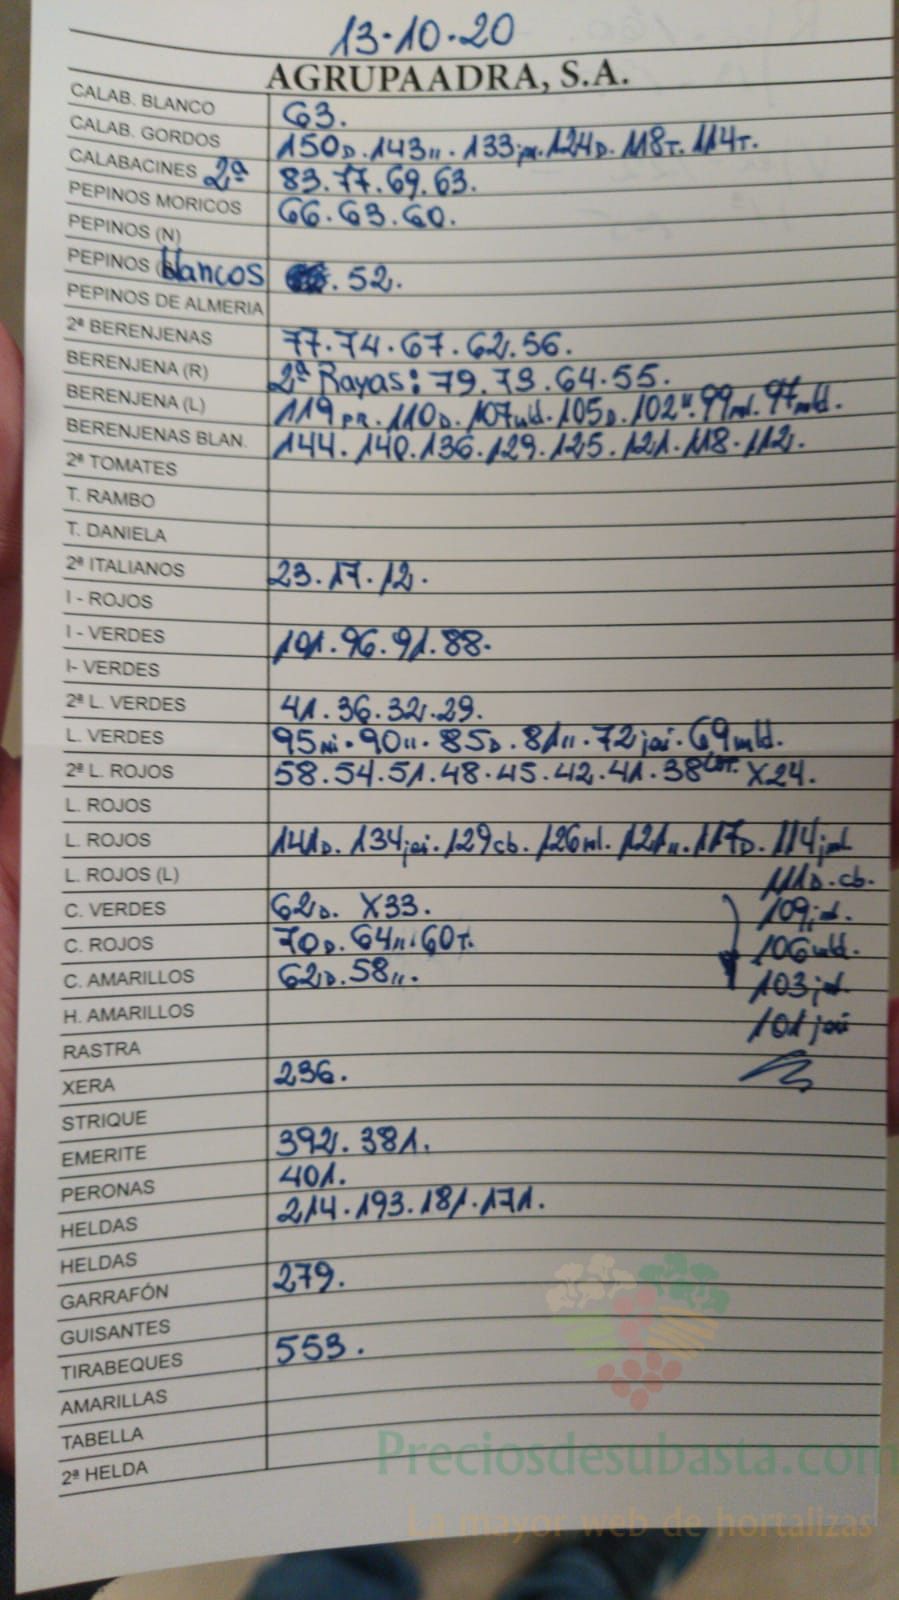 13-10-20
AGRUPAADRA, S.A.
CALAB. BLANCO 63.
CALAB. GORDOS 150D. 143". 133 124D. 118T. 114T.
CALABACINES 2ª 83. 77. 69. 63.
PEPINOS MORICOS 66. 63. 60.
PEPINOS (N)
PEPINOS blancos . 52.
PEPINOS DE ALMERIA
2ª BERENJENAS 77. 74. 67. 62. 56.
BERENJENA (R) 2ª Rayas: 79. 73. 64. 55.
BERENJENA (L) 119PR. 110D. 107mld. 105D. 102". 99ml. 97mld.
BERENJENAS BLAN. 144. 140. 136. 129. 125. 121. 118. 112.
2ª TOMATES
T. RAMBO
T. DANIELA
2ª ITALIANOS 23. 17. 12.
I - ROJOS
I - VERDES 101. 96. 91. 88.
I- VERDES
2ª L. VERDES 41. 36. 32. 29.
L. VERDES 95ni. 90". 85D. 81". 72jai. 69mld.
2ª L. ROJOS 58. 54. 51. 48. 45. 42. 41. 38 X24.
L. ROJOS
L. ROJOS 141D. 134jai. 129cb. 126ml. 121". 117D. 114jml
L. ROJOS (L) 111D.cb.
C. VERDES 62D. X33. 109jml.
C. ROJOS 70D. 64". 60T. 106mld.
C. AMARILLOS 62D. 58". 103jml.
H. AMARILLOS 101jai
RASTRA
XERA 236.
STRIQUE
EMERITE 392. 381.
PERONAS 401.
HELDAS 214. 193. 181. 171.
HELDAS
GARRAFÓN 279.
GUISANTES
TIRABEQUES 553.
AMARILLAS
TABELLA
2ª HELDA
Preciosdesubasta.com
La mayor web de hortalizas